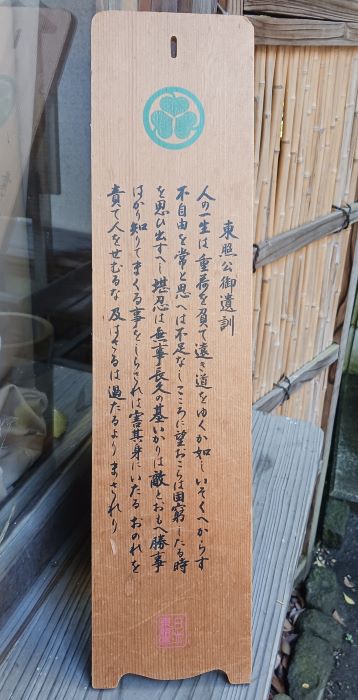 東照公御遺訓
人の一生は重荷を負て遠き道をゆくか如しいそくへからす
不自由を常と思へは不足なしこころに望おこらは困窮したる時
を思ひ出すへし堪忍は無事長久の基いかりは敵とおもへ勝事
はかり知りてまくる事をしらされは害其身にいたるおのれを
責て人をせむるな及はさるは過たるよりまされり